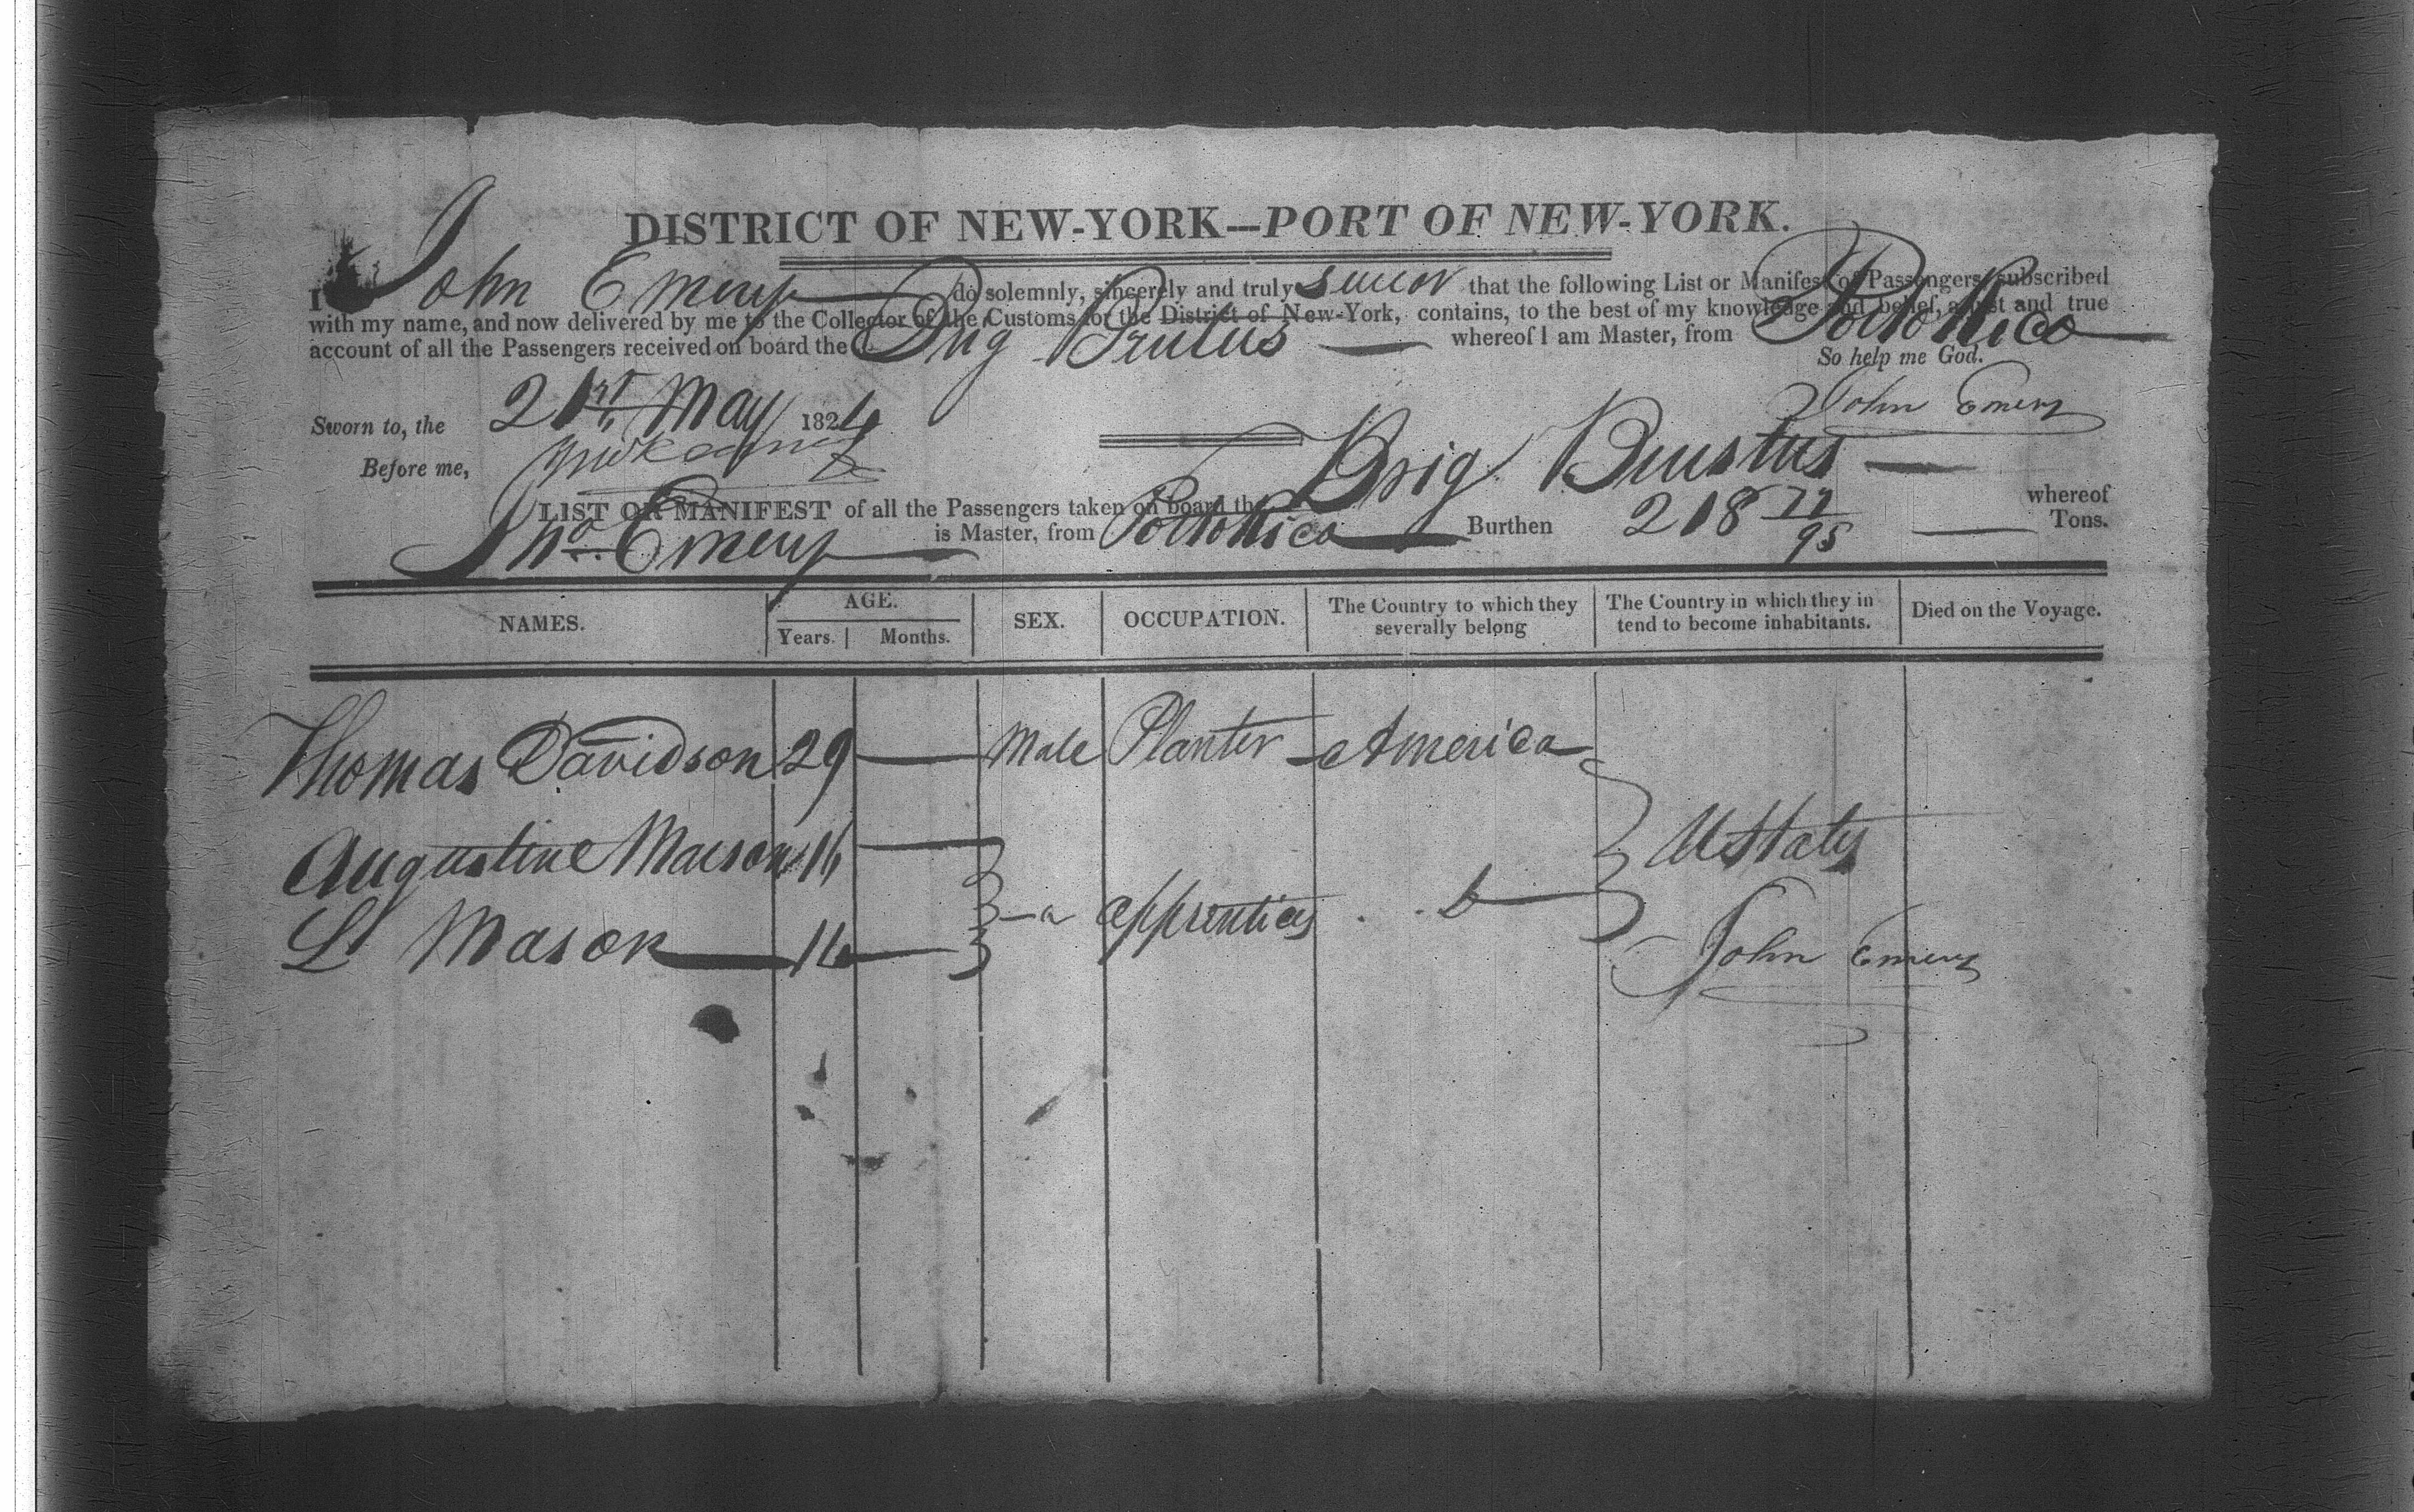 DISTRICT OF NEW-YORK—PORT OF NEW-YORK.
I John Emery do solemnly, sincerely and truly swear that the following List or Manifest of Passengers, subscribed
with my name, and now delivered by me to the Collector of the Customs for the District of New-York, contains, to the best of my knowledge and belief, a just and true
account of all the Passengers received on board the Brig Brutus whereof I am Master, from Porto Rico
So help me God.
Sworn to, the 21st May 1824 John Emery
Before me,
LIST OR MANIFEST of all the Passengers taken on board the Brig Brustus whereof
Jno Emery is Master, from Porto Rico Burthen 218 77/95 Tons.
NAMES. AGE. Years. Months. SEX. OCCUPATION. The Country to which they severally belong The Country in which they in tend to become inhabitants. Died on the Voyage.
Thomas Davidson 29 Male Planter America
Augustine Mason 16
U States
apprentices
L Mason 16
John Emery